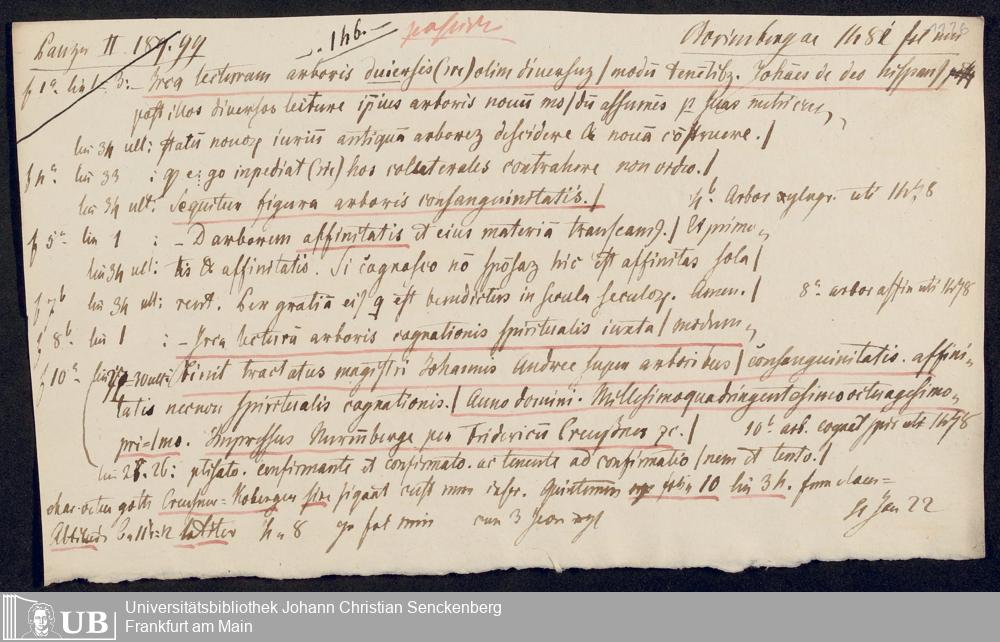 Panzer II 189.99 146. Norimbergae 1481 fol min
f 1a lin 1-3: - Irca lecturam arboris diuersis (sic) olim diuersuz / modū tenētibz. Johānes de deo hispan9
post illos diuersos lecture ipius arboris nouū mo/dū assumēs
lin 34 ult: statū nouoꝝ iuriū antiquā arborez descidere & nouā cōstruere./
f 4a lin 33 : ergo inpediat (sic) hos collaterales contrahere non ordo./
lin 34 ult: Sequitur figura arboris consanguinitatis./ 4b Arbor xylogr. uti 1478
f 5a lin 1 : - D arborem affinitatis et eius materiā transeam9./ Et primo
lin 34 ult: tis & affinitatis. Si cognosco nō sponsaz hic est affinitas sola/
f 7b lin 34 ult: rent. Per gratiā ei9 q est benedictus in secula seculoꝝ. Amen./ 8a arbor affin uti 1478
f 8b lin 1 : - Irca lecturā arboris cognationis spiritualis iuxta / modum
f 10a finit tractatus magistri Johannis Andree super arboribus / cōsanguinitatis. affini-
tatis necnon spiritualis cognationis./ Anno domini. Millesimoquadringentesimooctuagesimo
pri=/mo. Impressus Nurmberge per Fridericū Creusner ꝛc./ 10b arb. cognat spir uti 1478
lin 26: ptisato. confirmante et confirmato. ac tenente ad confirmatio/nem et tento./
char goth Creusner= Koberger sine sign̄at cust num 10 lin 34.
4 8 10 fol min cum 3 xyl Jan 22
Universitätsbibliothek Johann Christian Senckenberg
UB Frankfurt am Main